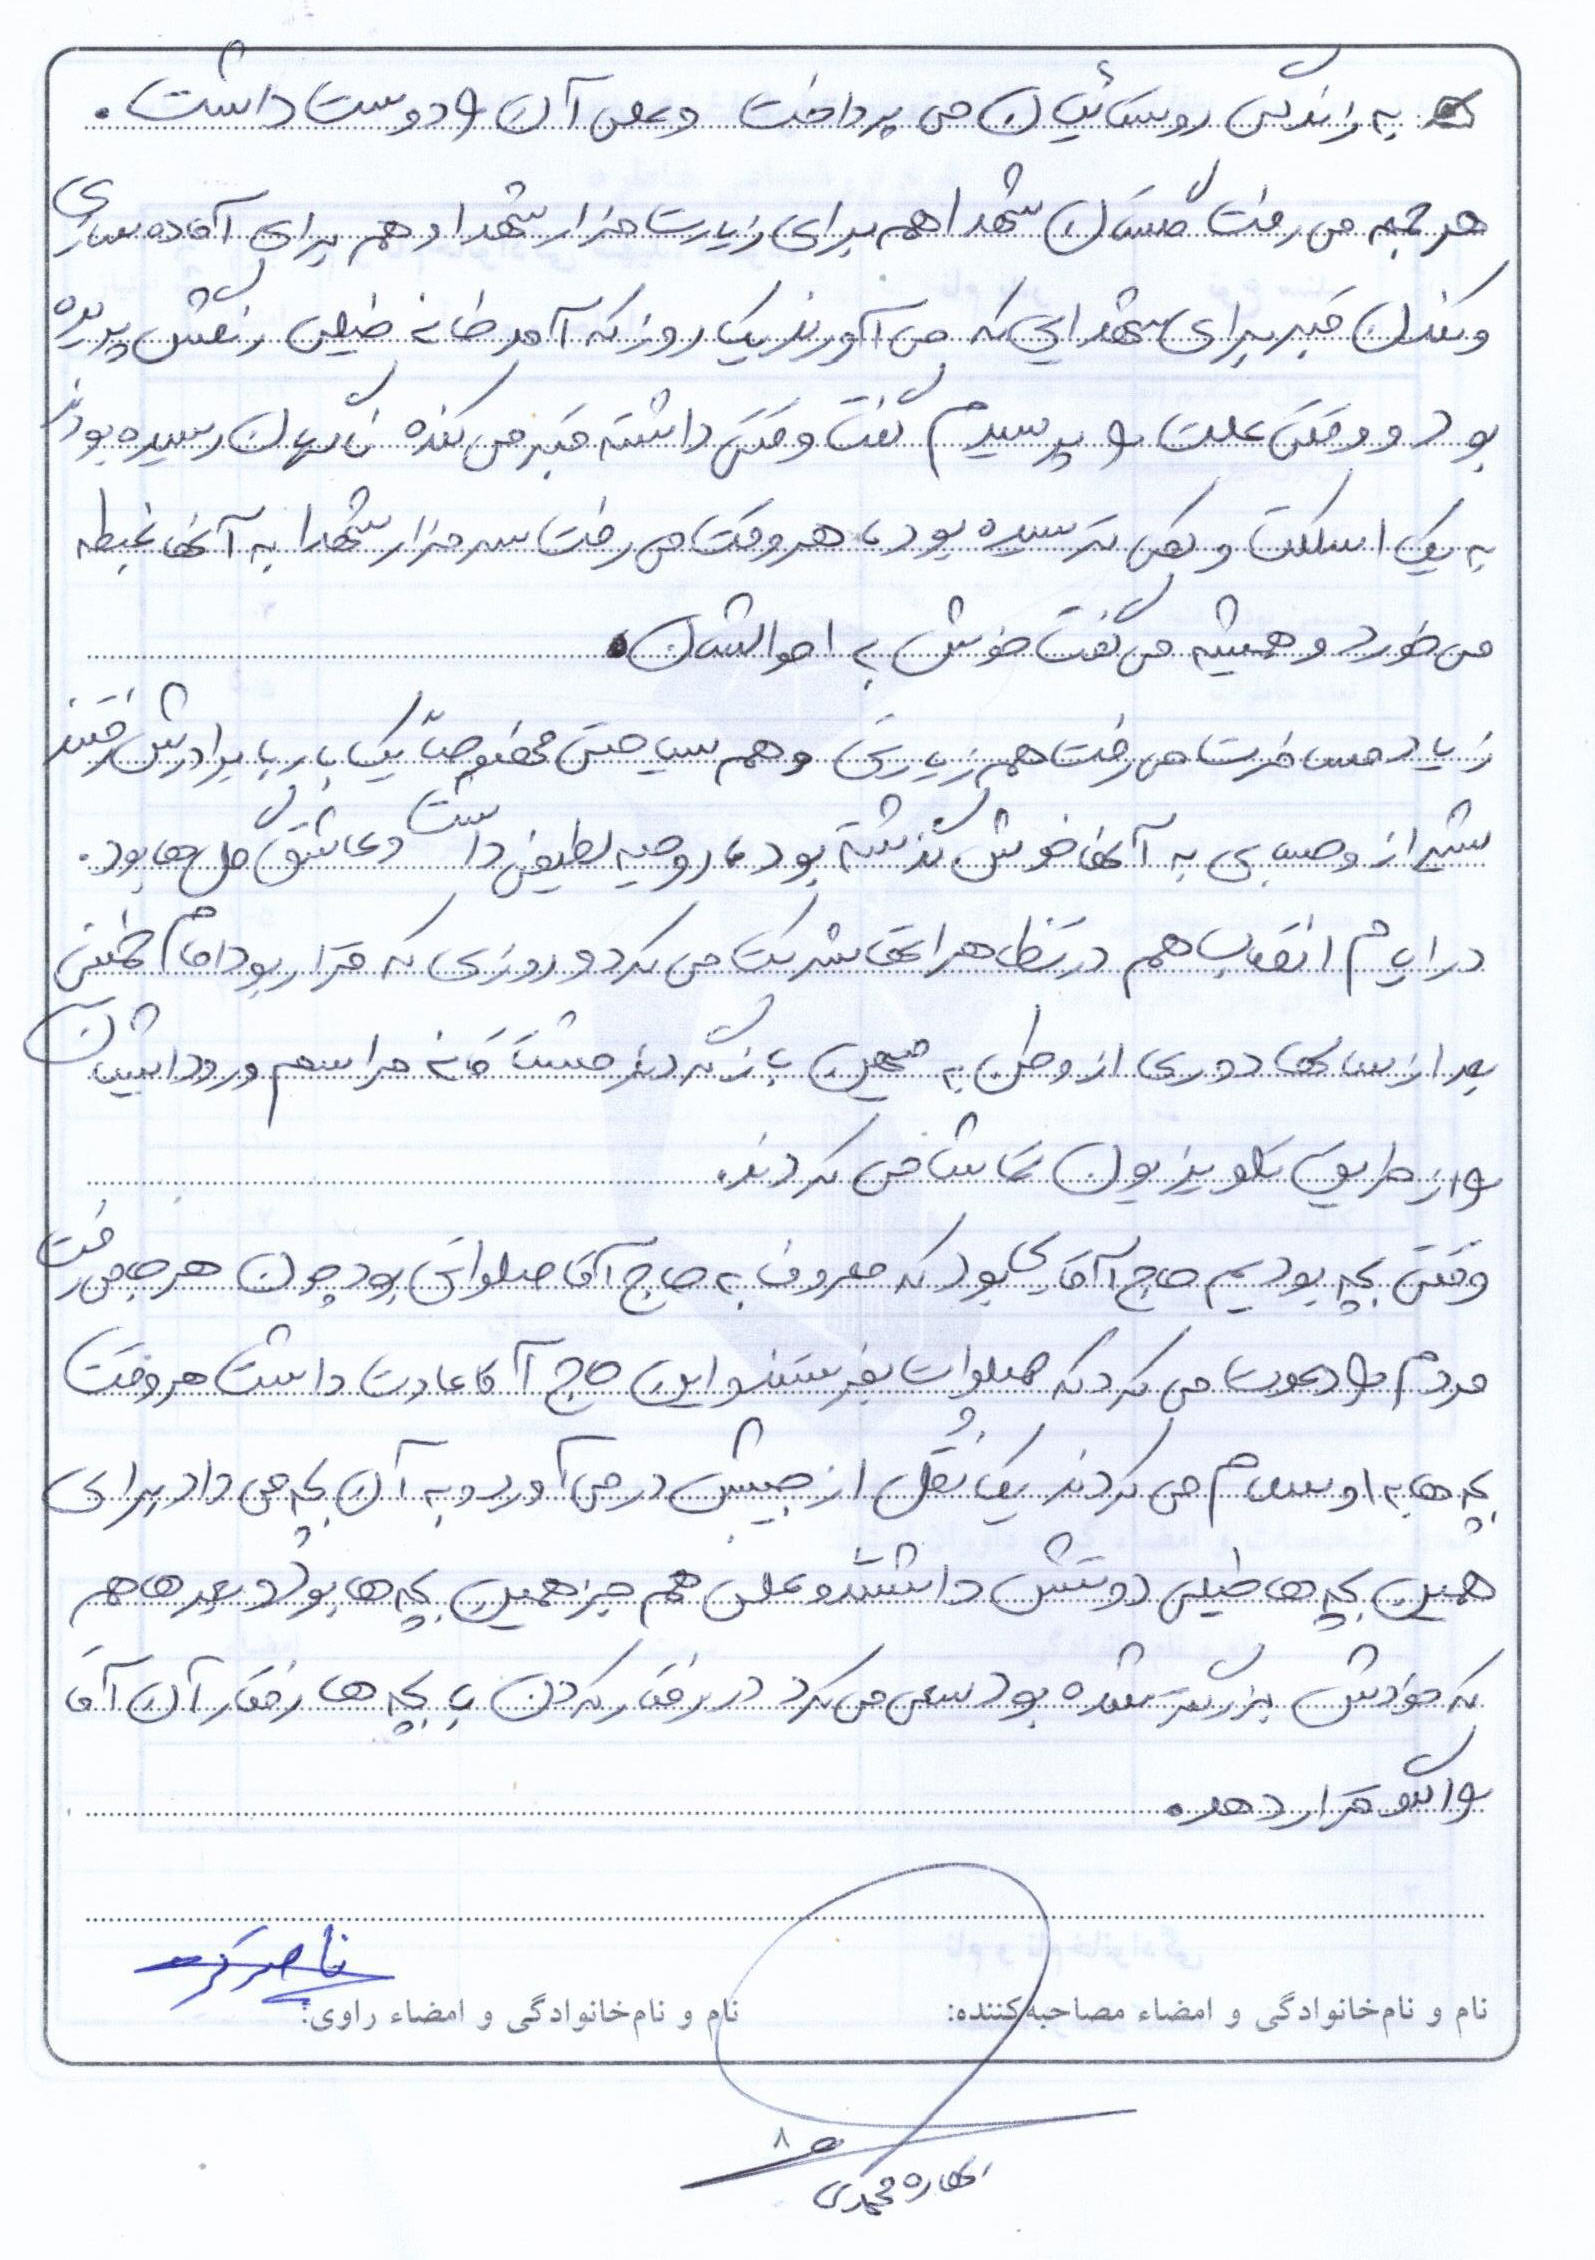 به زندگی روستائیان می پرداخت و علی آن را دوست داشت.
هر جمعه می رفت گلستان شهدا هم برای زیارت مزار شهدا و هم برای آماده سازی
و کندن قبر برای شهدایی که می آورند یک روز که آمد خانه خیلی رنگش پریده
بود و وقتی علت را پرسیدم گفت وقتی داشته قبر می کنده ناگهان رسیده بودند
به یک اسکلت و یکی ترسیده بود، هر وقت می رفت سر مزار شهدا به آنها غبطه
می خورد و همیشه می گفت خوش به احوالشان.
زیاد مسافرت می رفت هم زیارتی و هم سیاحتی مخصوصاً یک بار با برادرش رفتند
شیراز و حسابی به آنها خوش گذشته بود، روحیه لطیفی داشت و عاشق گل ها بود.
در ایام انقلاب هم در تظاهراتها شرکت می کرد و روزی که قرار بود امام خمینی
بعد از سالها دوری از وطن به میهن باز گردند مشتاقانه مراسم ورود ایشان
را از طریق تلویزیون تماشا می کردند.
وقتی بچه بودیم حاج آقایی بود که معروف به حاج آقا صلواتی بود چون هر جا می رفت
مردم را دعوت می کرد که صلوات بفرستند و این حاج آقا عادت داشت هر وقت
بچه ها به او سلام می کردند یک نُقل از جیبش در می آورد و به آن بچه می داد برای
همین بچه ها خیلی دوستش داشتند و علی هم جز همین بچه ها بود و بعدها هم
که خودش بزرگتر شده بود سعی می کرد در رفتار کردن با بچه ها رفتار آن آقا
را الگو قرار دهد.
نام و نام‌خانوادگی و امضاء مصاحبه‌کننده:
نام و نام‌خانوادگی و امضاء راوی:
محمدی